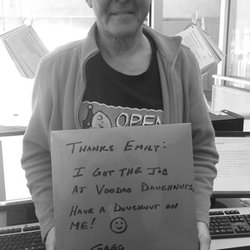 OPEN
THANKS EMILY:
I GOT THE JOB
AT VOODOO DOUGHNUTS,
HAVE A DOUGHNUT ON
ME! ☺
GREG